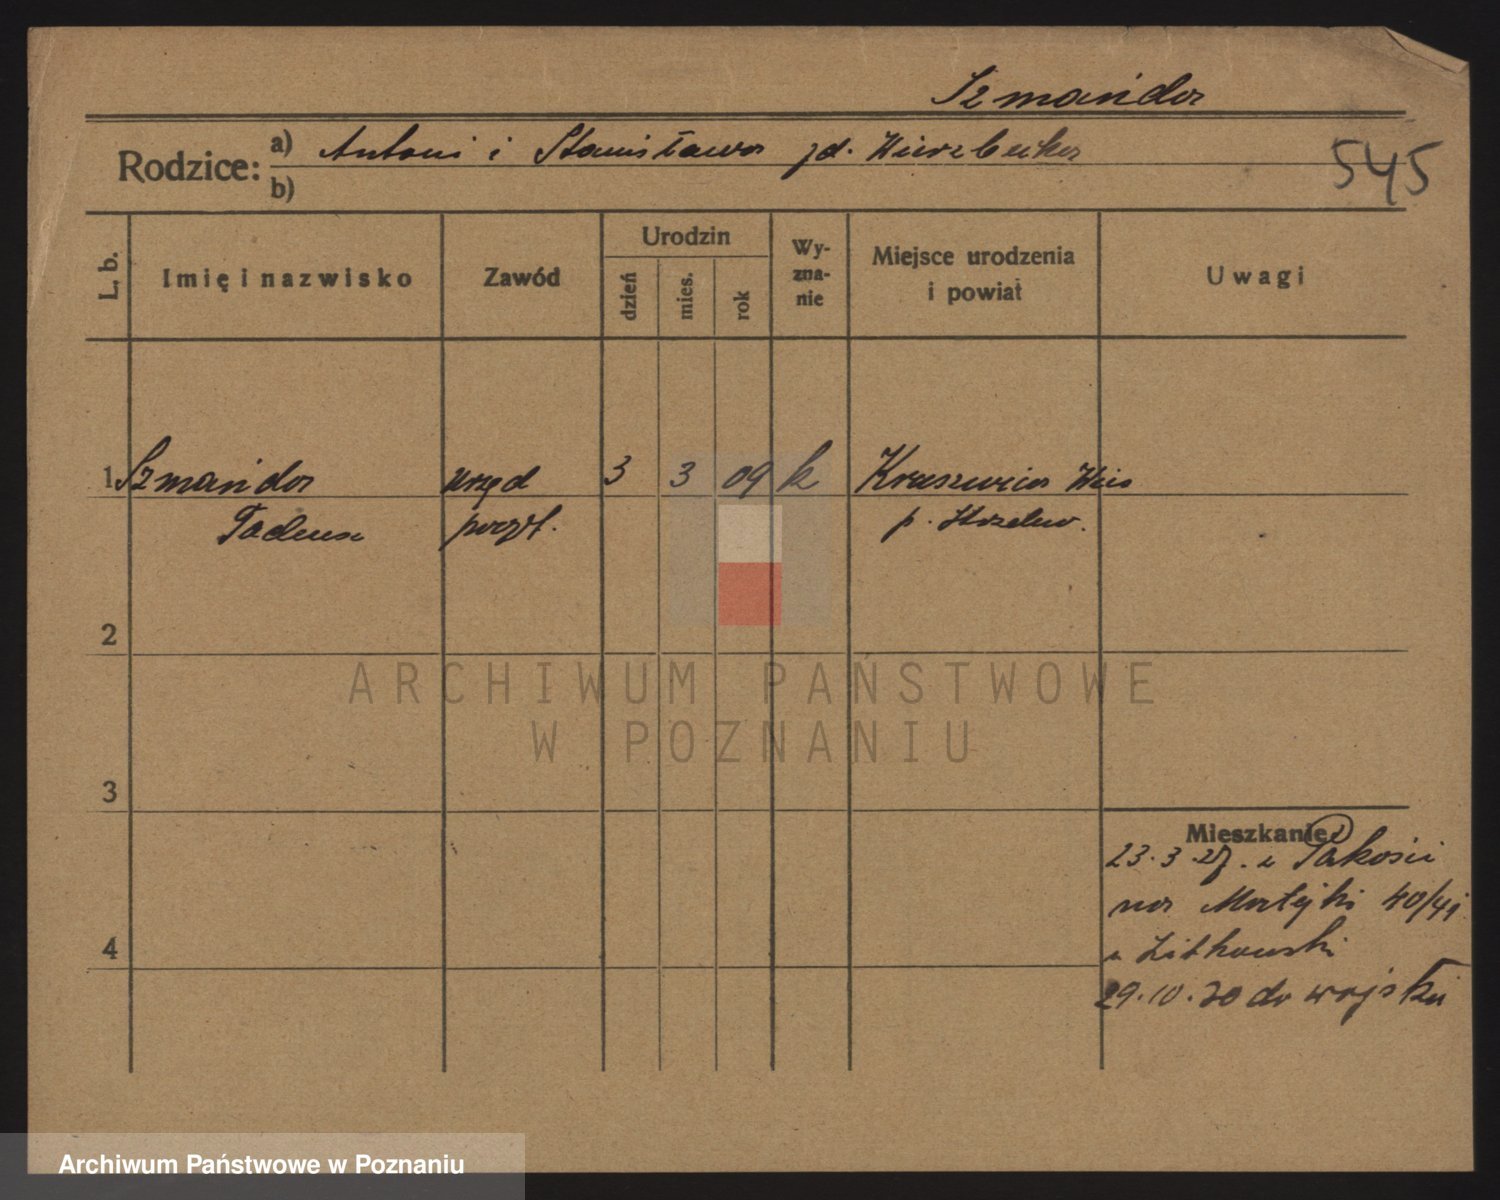 Szmańda
Rodzice:
a) Antoni i Stanisława zd. Wierzbicka
545
b)
L. b.
Imię i nazwisko
Zawód
Urodzin
dzień
mies.
rok
Wy-
zna-
nie
Miejsce urodzenia
i powiat
Uwagi
1 Szmańda urzęd 3 3 09 k Kruszwica Wieś
Tadeusz poczt. p. Strzelno.
2
ARCHIWUM PAŃSTWOWE
W POZNANIU
3
Mieszkanie
23.3.27. z Pakości
na Matejki 40/41
u Litkowski
29.10.30 do wojska
4
Archiwum Państwowe w Poznaniu